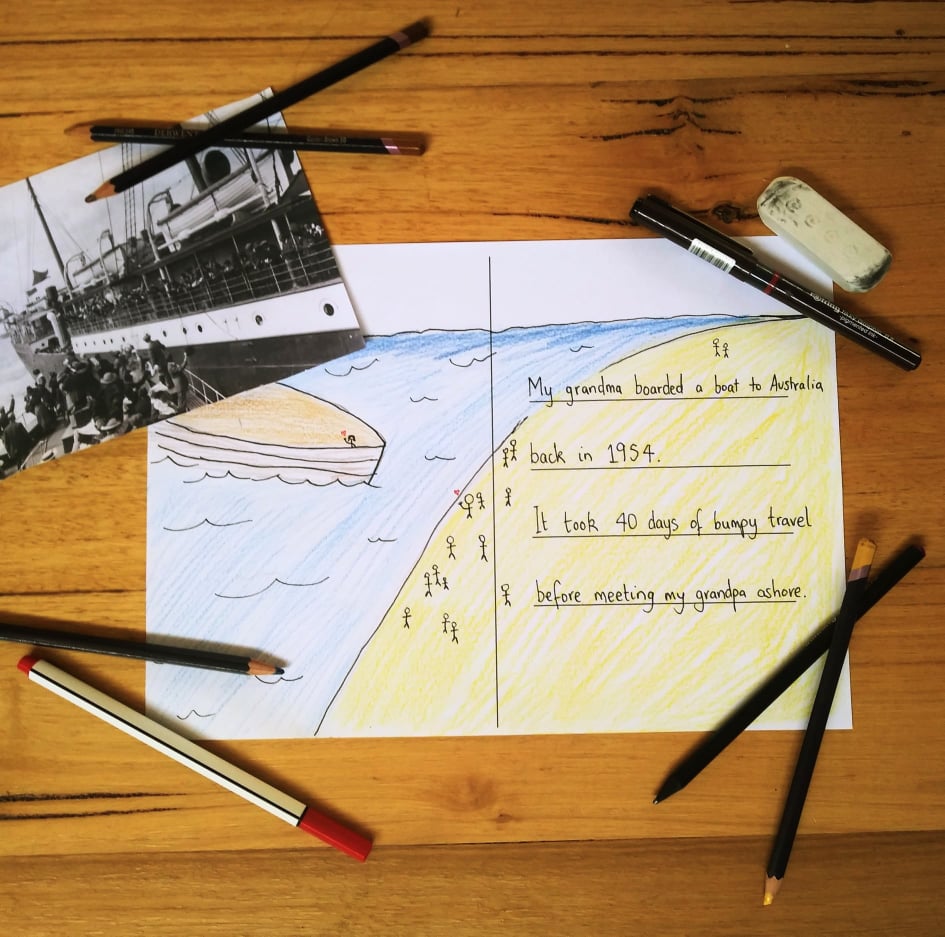 DERWENT
My grandma boarded a boat to Australia
back in 1954.
It took 40 days of bumpy travel
before meeting my grandpa ashore.